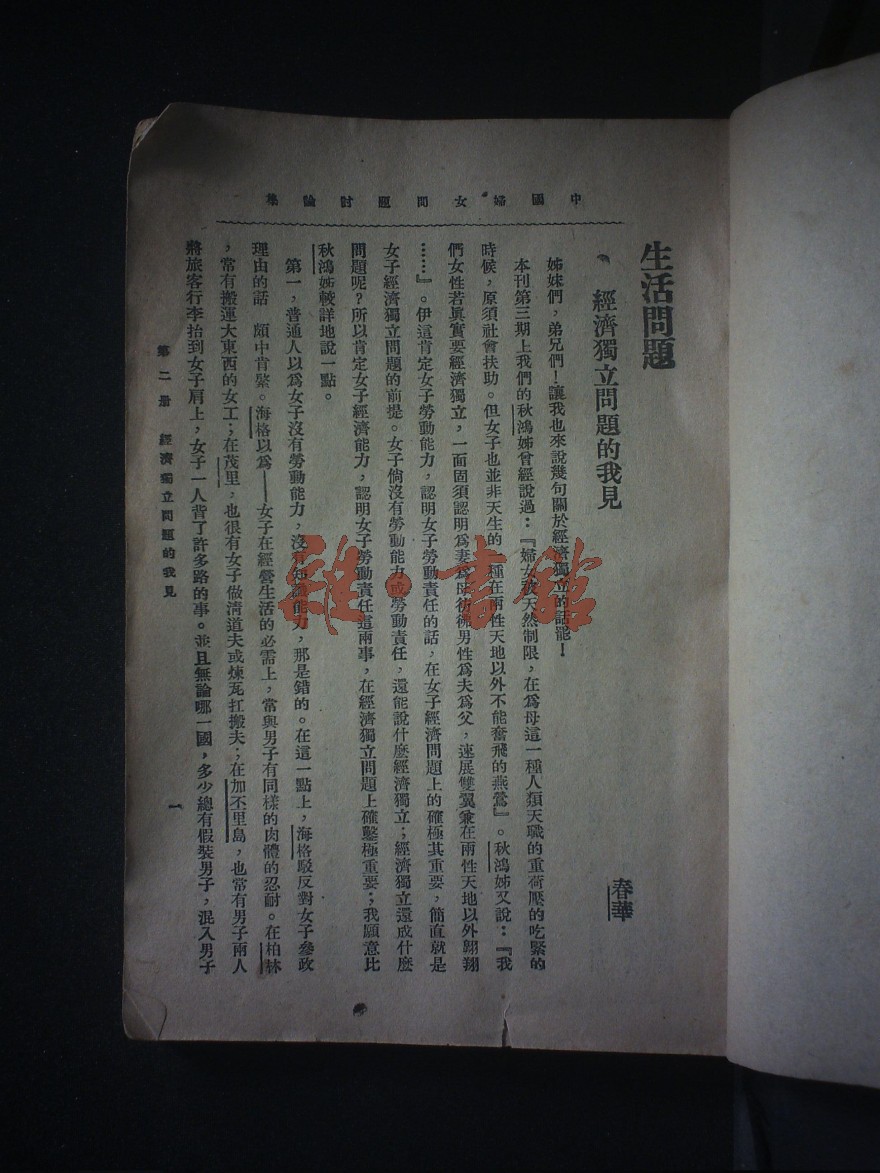 中國婦女問題討論集
生活問題
經濟獨立問題的我見
春華
姊妹們，弟兄們！讓我也來說幾句關於經濟獨立的話罷！
本刊第三期上我們的秋鴻姊曾經說過：『婦女被天然制限，在爲母這一種人類天職的重荷壓的吃緊的
時候，原須社會扶助。但女子也並非天生的一種在兩性天地以外不能奮飛的燕鶯』。秋鴻姊又說：『我
們女性若眞實要經濟獨立，一面固須認明爲妻爲母彷彿男性爲夫爲父，速展雙翼兼在兩性天地以外翺翔
……』。伊這肯定女子勞動能力，認明女子勞動責任的話，在女子經濟問題上的確極其重要，簡直就是
女子經濟獨立問題的前提。女子倘沒有勞動能力或勞動責任，還能說什麽經濟獨立；經濟獨立還成什麽
問題呢？所以肯定女子經濟能力，認明女子勞動責任這兩事，在經濟獨立問題上確鑿極重要；我願意比
秋鴻姊較詳地說一點。
第一，普通人以爲女子沒有勞動能力，沒有知識能力，那是錯的。在這一點上，海格駁反對女子參政
理由的話　頗中肯綮。海格以爲——女子在經營生活的必需上，常與男子有同樣的肉體的忍耐。在柏林
，常有搬運大東西的女工；在茂里，也很有女子做清道夫或煉瓦扛搬夫；在加丕里島，也常有男子兩人
將旅客行李抬到女子肩上，女子一人背了許多路的事。並且無論哪一國，多少總有假裝男子，混入男子
第二册　經濟獨立問題的我見
一
雜·書館